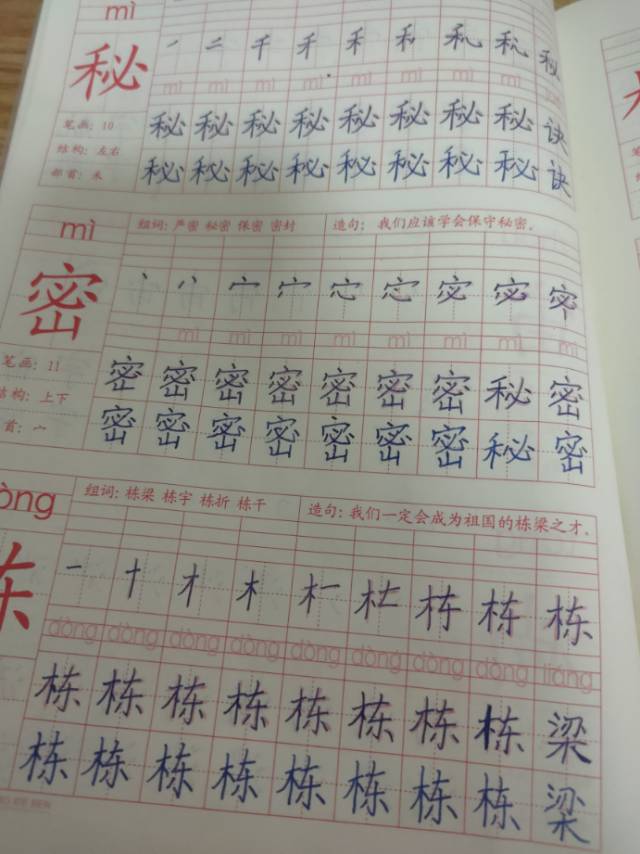 mì
秘 一 二 千 禾 禾 秘
mì mì mì mì mì mì mì mì
笔画：10 秘 秘 秘 秘 秘 秘 秘 秘 诀
结构：左右
部首：禾 秘 秘 秘 秘 秘 秘 秘 秘 诀
mì 组词：严密 秘密 保密 密封 造句：我们应该学会保守秘密。
密
mì mì mì mì mì mì mì mì
笔画：11 密 密 密 密 密 密 密 秘 密
结构：上下
首：宀 密 密 密 密 密 密 密 秘 密
òng 组词：栋梁 栋宇 栋折 栋干 造句：我们一定会成为祖国的栋梁之才。
栋 一 十 才 木 栋 栋
dòng dòng dòng dòng dòng dòng dòng dòng liáng
栋 栋 栋 栋 栋 栋 栋 栋 梁
栋 栋 栋 栋 栋 栋 栋 栋 梁